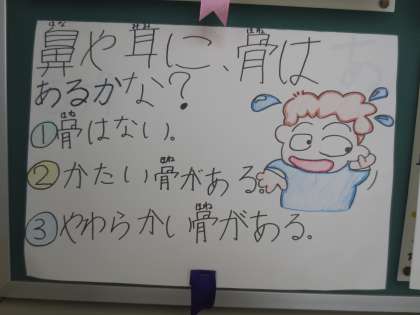 鼻や耳に、骨は
あるかな？
①骨はない。
②かたい骨がある。
③やわらかい骨がある。